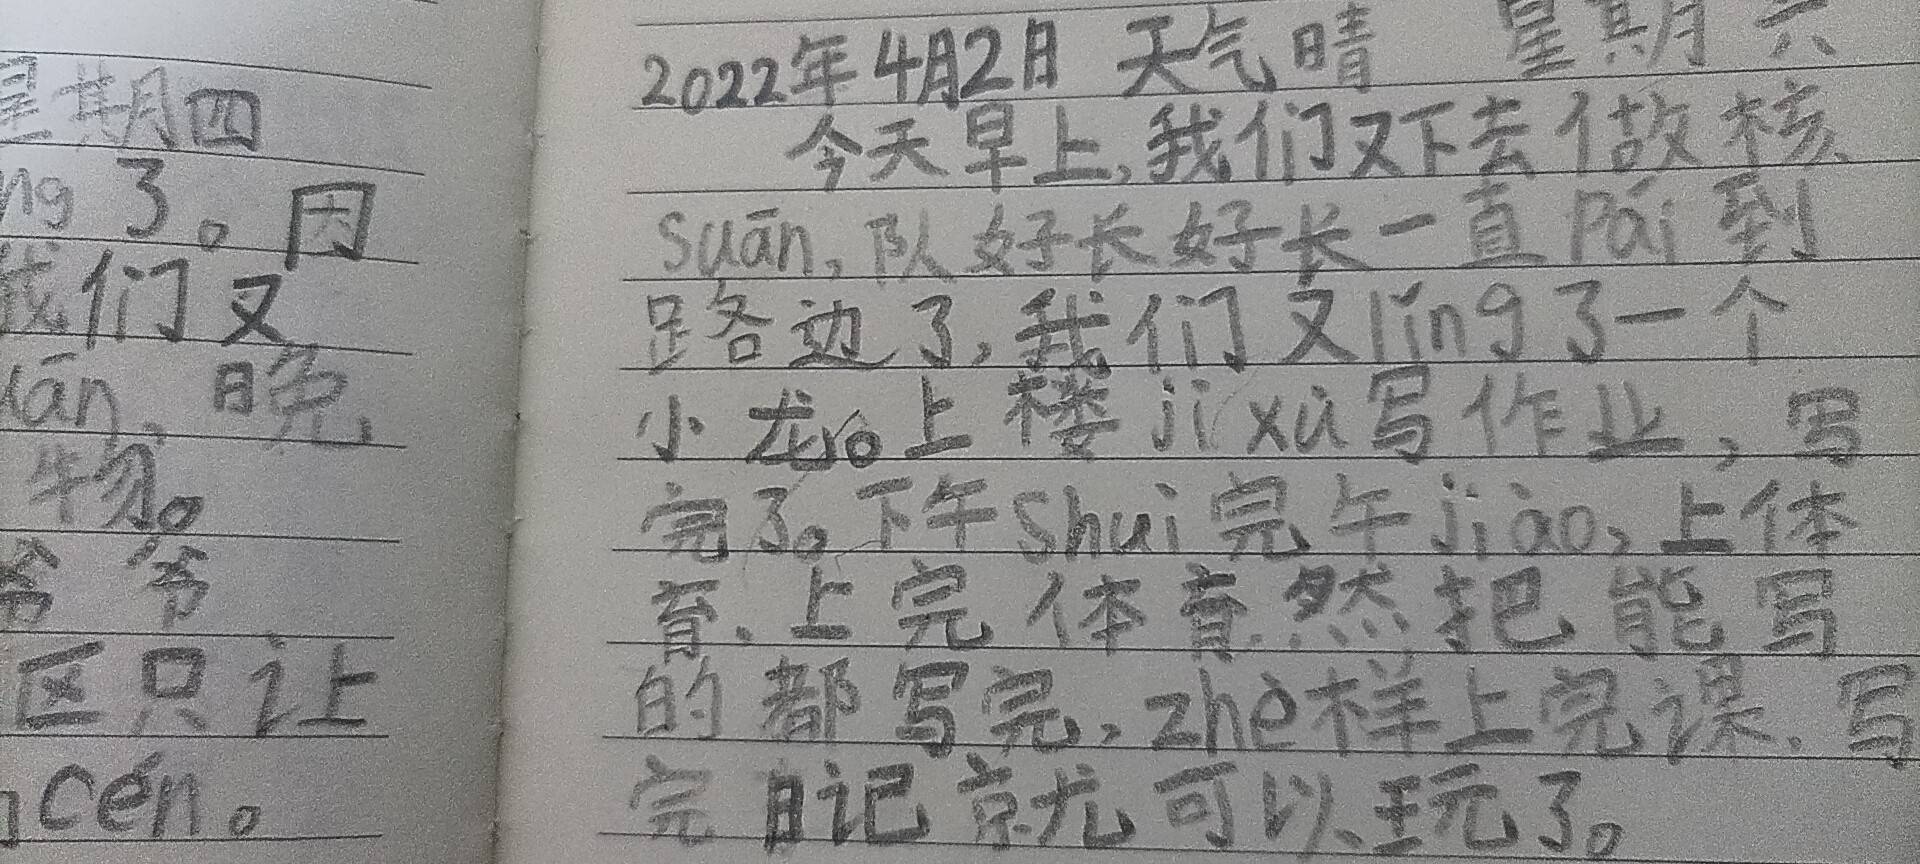 星期四
ng了。因
我们又
uān,晚
物。
爷爷
区只让
cén。
2022年4月2日 天气晴 星期六
今天早上,我们又下去做核
suān,队好长好长一直pái到
路边了,我们又lǐng了一个
小龙。上楼jì xù写作业,写
完了。下午shuì完午jiào,上体
育、上完体育然把能写
的都写完,zhè样上完课、写
完日记就可以玩了。